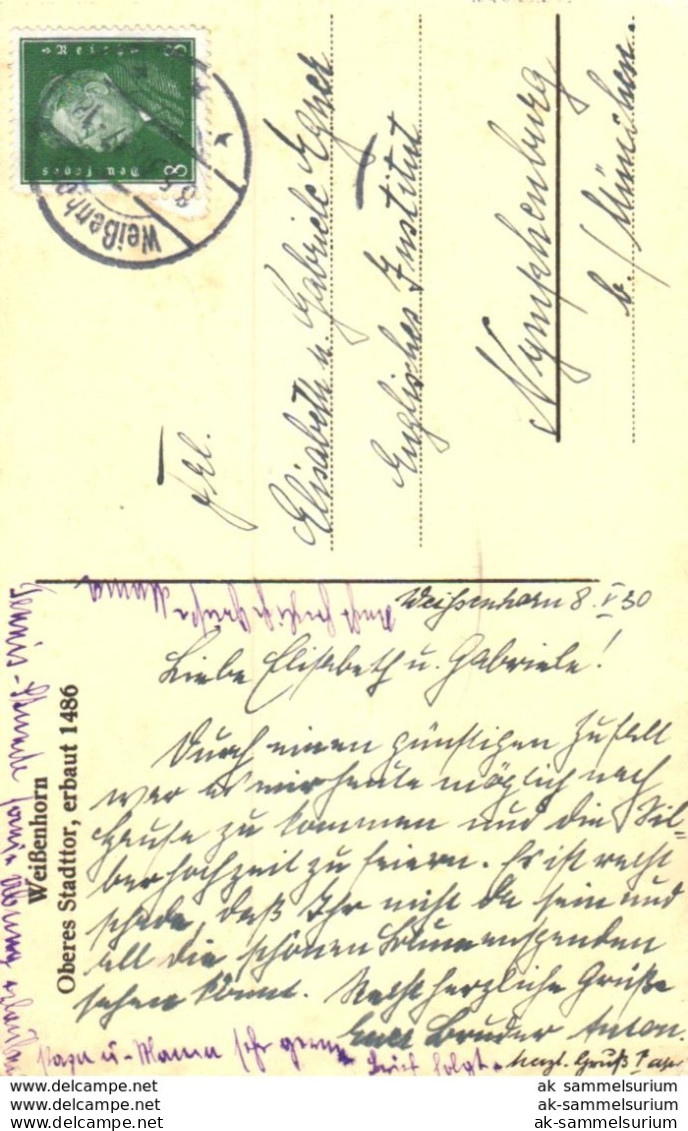 8
8
Deutsches Reich
Weißenhorn
Frl.
Elisabeth u. Gabriele Egner
Englisches Institut
Nymphenburg
b./München.
Weißenhorn
Oberes Stadttor, erbaut 1486
Weißenhorn 8. V 30
Liebe Elisabeth u. Gabriele!
Durch einen günstigen Zufall
war es mir heute möglich nach
Hause zu kommen und die Sil-
berhochzeit zu feiern. Es ist recht
schade, daß Ihr nicht da sein und
all die schönen Blumenspenden
sehen könnt. Recht herzliche Grüße
Euer Bruder Anton.
Recht herzliche Grüße Mama
Papa u. Mama sehr gerne
Brief folgt.
herzl. Gruß Papa
ak_sammelsurium
ak-sammelsurium
ak-sammelsurium